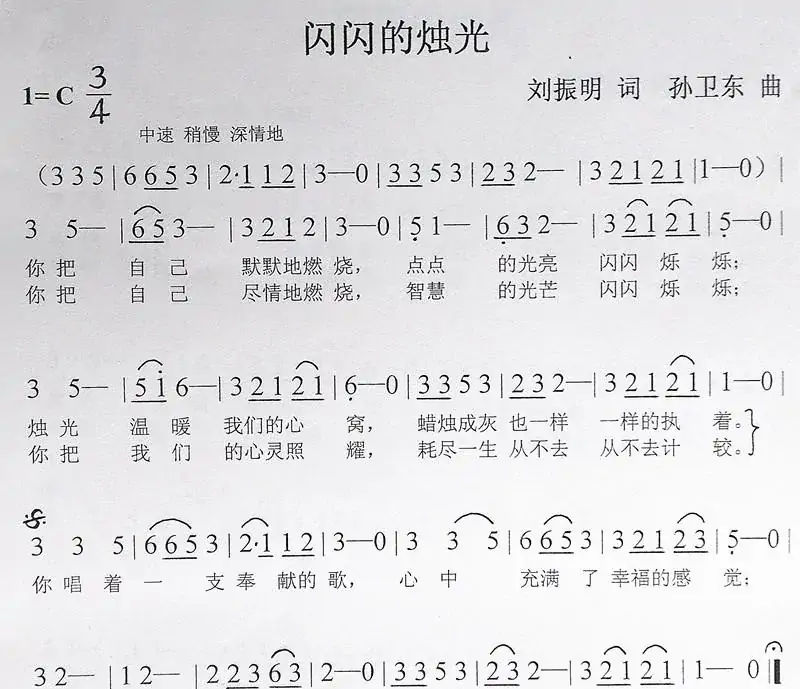 闪闪的烛光
1=C 3/4
刘振明 词 孙卫东 曲
中速 稍慢 深情地
(3 3 5 | 6 6 5 3 | 2·1 1 2 | 3—0 | 3 3 5 3 | 2 3 2— | 3 2 1 2 1 | 1—0) |
3 5— | 6 5 3— | 3 2 1 2 | 3—0 | 5 1— | 6 3 2— | 3 2 1 2 1 | 5—0 |
你 把 自 己 默默地燃 烧, 点点 的光亮 闪闪 烁 烁;
你 把 自 己 尽情地燃 烧, 智慧 的光芒 闪闪 烁 烁;
3 5— | 5 1 6— | 3 2 1 2 1 | 6—0 | 3 3 5 3 | 2 3 2— | 3 2 1 2 1 | 1—0 |
烛 光 温 暖 我们的心 窝, 蜡烛成灰 也一样 一样的执 着。
你 把 我 们 的心灵照 耀, 耗尽一生 从不去 从不去计 较。
3 3 5 | 6 6 5 3 | 2·1 1 2 | 3—0 | 3 3 5 | 6 6 5 3 | 3 2 1 2 3 | 5—0 |
你 唱 着 一 支 奉 献的 歌, 心 中 充满 了 幸福的感 觉;
3 2— | 1 2— | 2 2 3 6 3 | 2—0 | 3 3 5 3 | 2 3 2— | 3 2 1 2 1 | 1—0 ‖